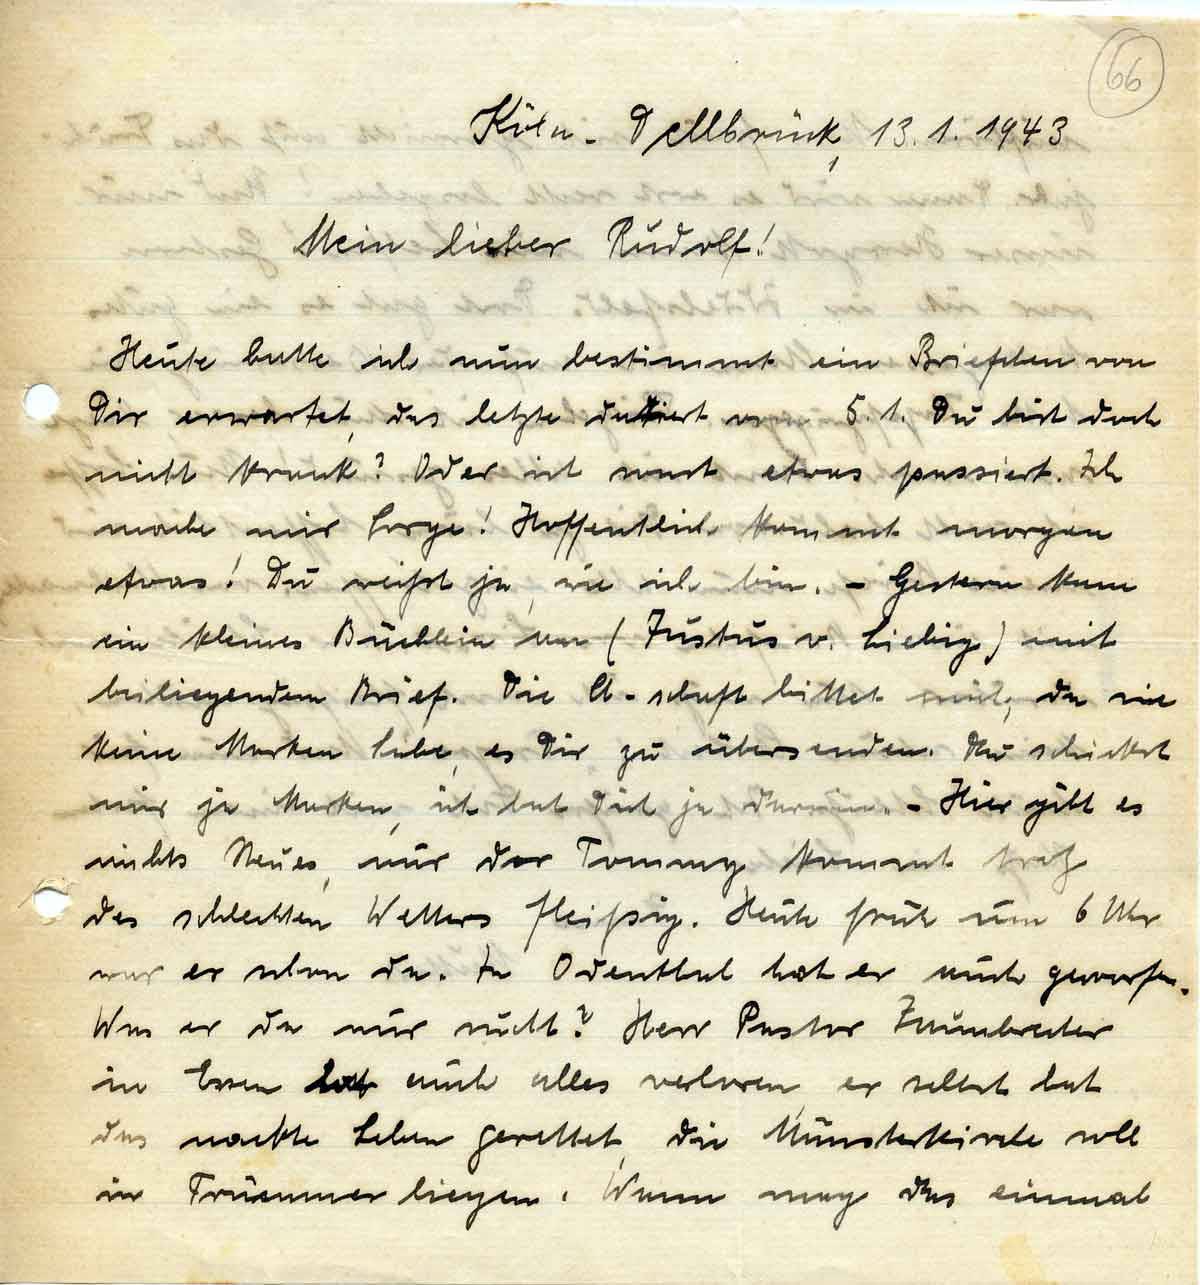 66
Köln-Dellbrück, 13.1.1943
Mein lieber Rudolf!
Heute hatte ich nun bestimmt ein Briefchen von
Dir erwartet, das letzte datiert vom 5.1. Du bist doch
nicht krank? Oder ist sonst etwas passiert. Ich
mache mir Sorge! Hoffentlich kommt morgen
etwas! Du weißt ja, wie ich bin. - Gestern kam
ein kleines Büchlein an (Justus v. Liebig) mit
beiliegendem Brief. Die A-schaft bittet mich, da sie
keine Marken habe, es Dir zu übersenden. Du schickst
mir ja Marken, ich bat Dich ja darum. - Hier gibt es
nichts Neues, nur der Tommy kommt trotz
des schlechten Wetters fleißig. Heute früh um 6 Uhr
war er schon da. In Odenthal hat er auch geworfen.
Was er da nur sucht? Herr Pastor
in Essen hat auch alles verloren, er selbst hat
das nackte Leben gerettet, die Münsterkirche soll
in Trümmer liegen. Wann mag das einmal